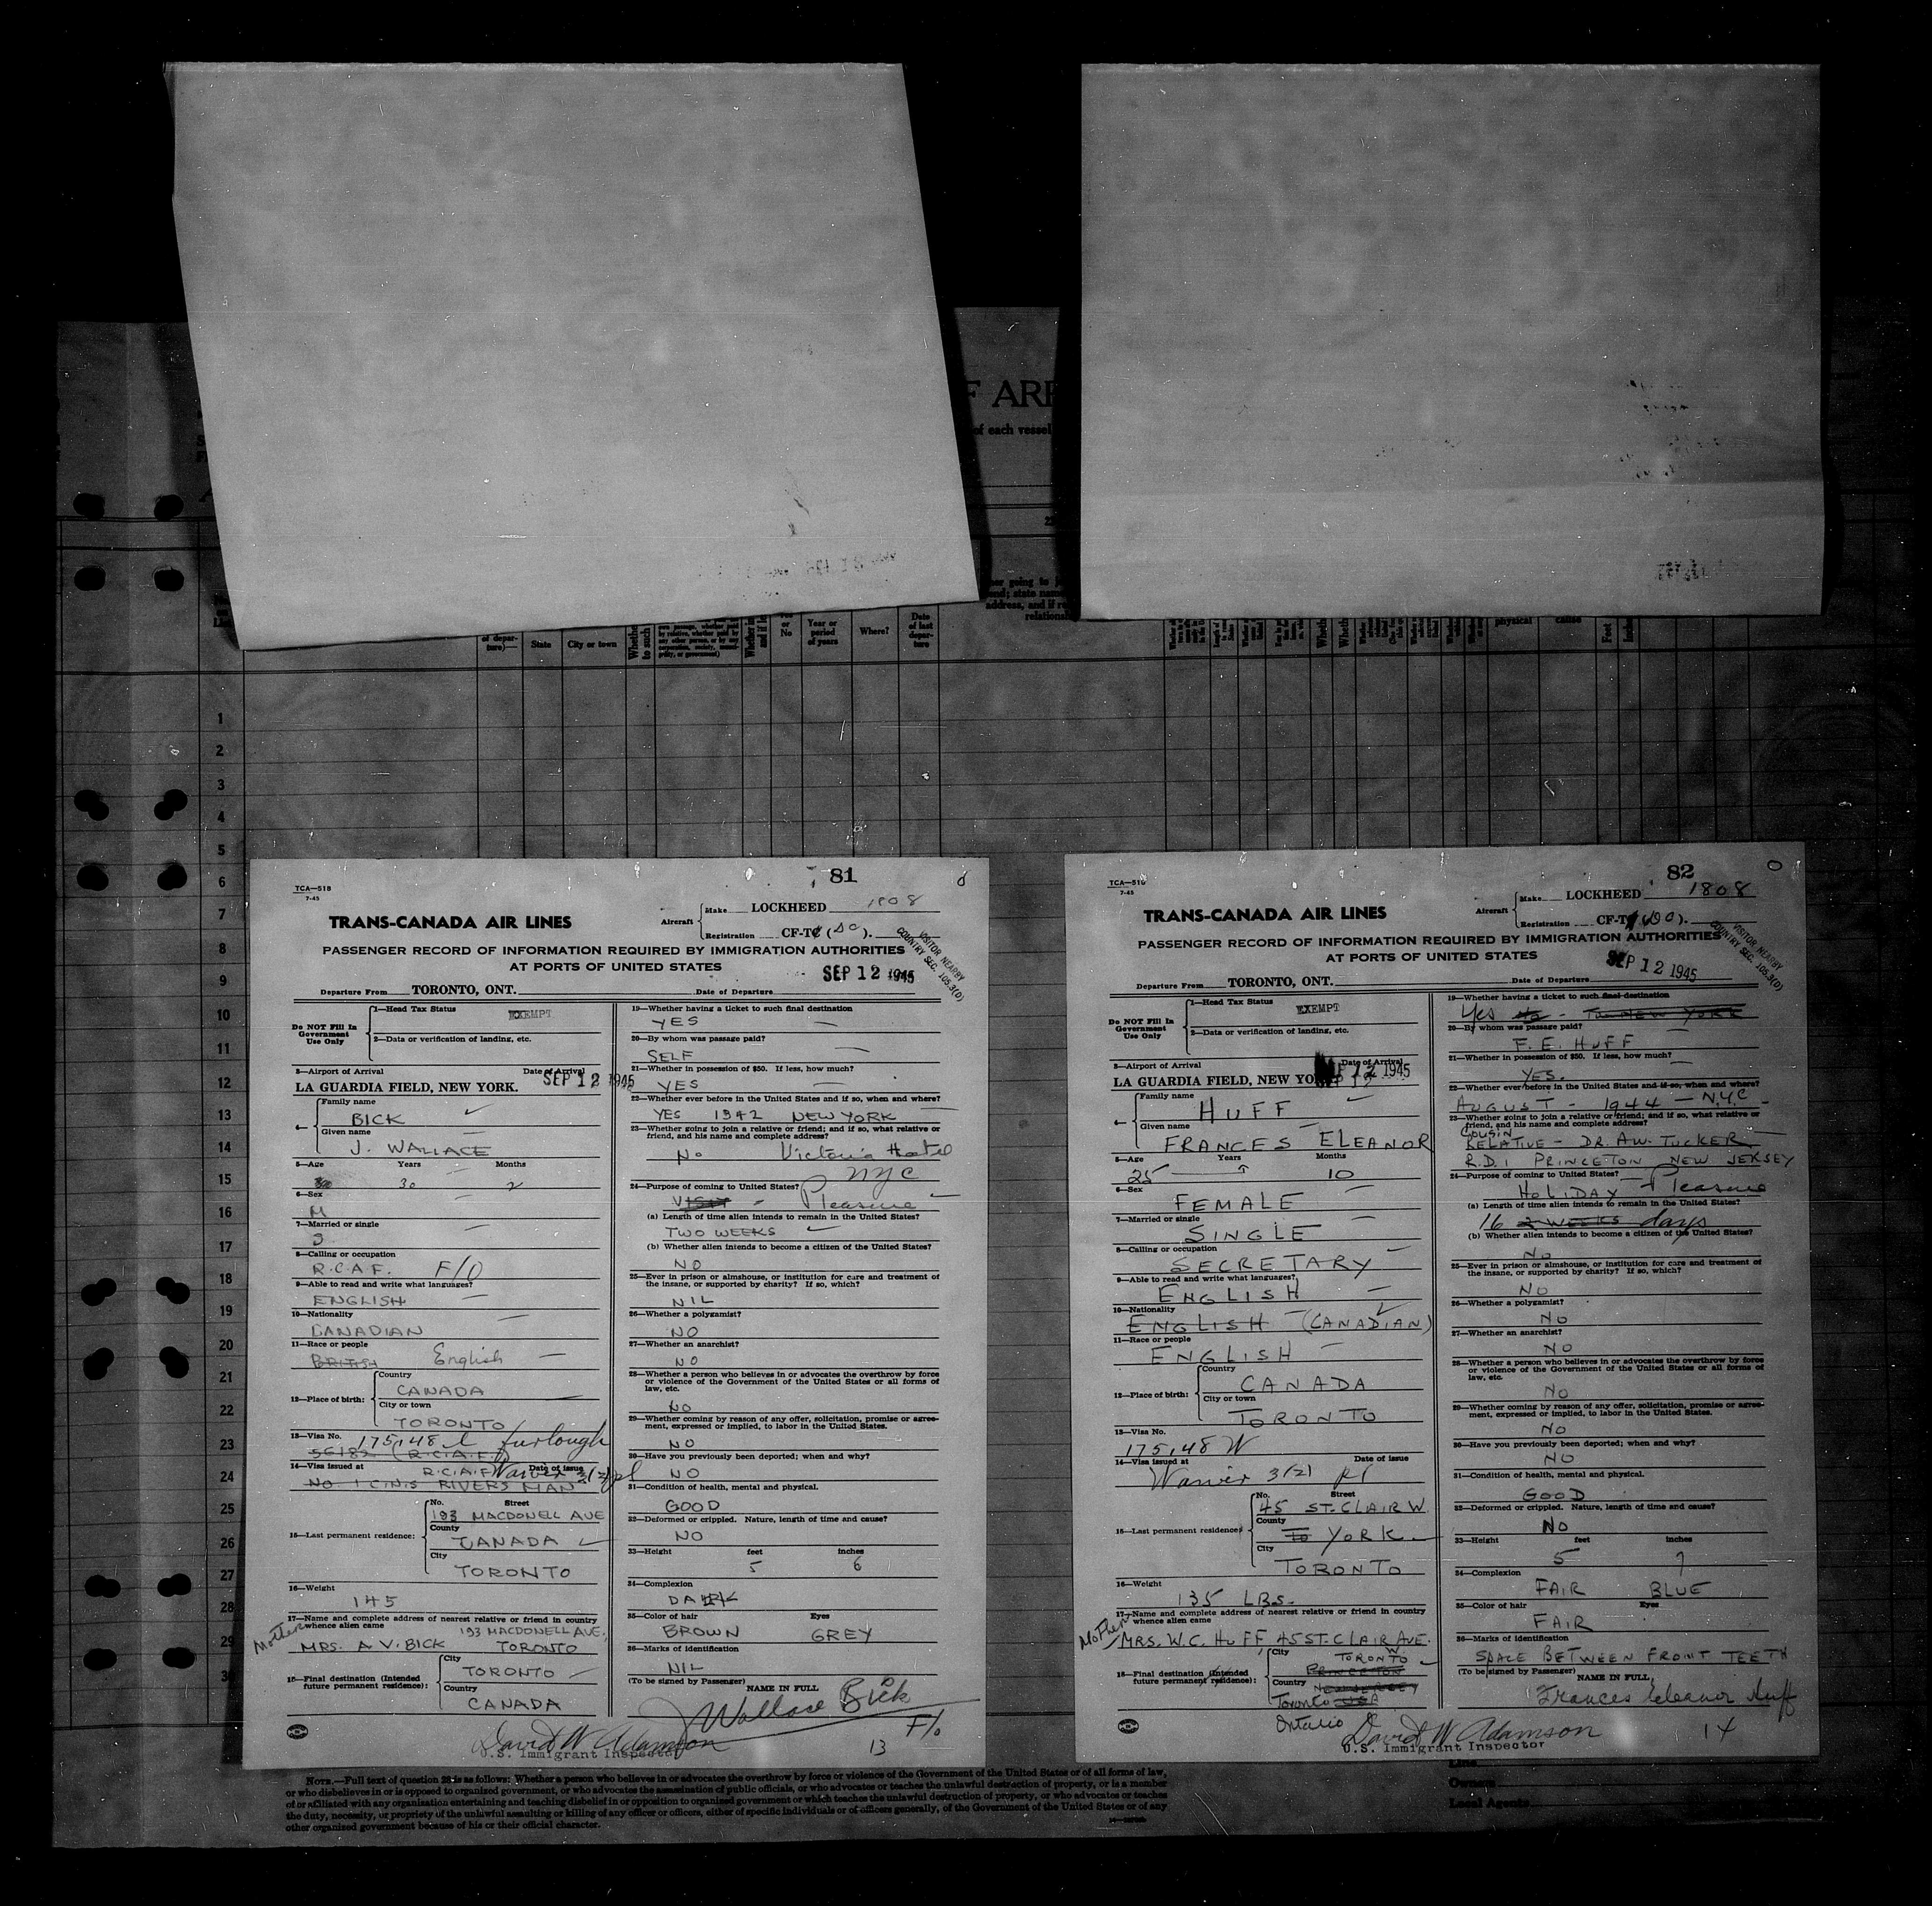 F ARR
of each vessel
of depar-
ture)—
State
City or town
or
No
Year or
period
of years
Where?
Date
of last
depar-
ture
physical
cause
Feet
1
2
3
4
5
6
7
8
9
10
11
12
13
14
15
16
17
18
19
20
21
22
23
24
25
26
27
28
29
30
81
TCA—518
7-45
TRANS-CANADA AIR LINES
Aircraft
Make LOCKHEED 1808
Registration CF-TC (DC).
PASSENGER RECORD OF INFORMATION REQUIRED BY IMMIGRATION AUTHORITIES
AT PORTS OF UNITED STATES
VISITOR NEARBY
COUNTRY SEC. 105.3(D)
SEP 12 1945
Departure From TORONTO, ONT. Date of Departure
Do NOT Fill In
Government
Use Only
1—Head Tax Status EXEMPT
2—Data or verification of landing, etc.
3—Airport of Arrival Date of Arrival
LA GUARDIA FIELD, NEW YORK. SEP 12 1945
4—
Family name
BICK
Given name
J. WALLACE
5—Age Years Months
30 2
6—Sex
M
7—Married or single
S
8—Calling or occupation
R.C.A.F. F/O
9—Able to read and write what languages?
ENGLISH
10—Nationality
CANADIAN
11—Race or people
BRITISH English
12—Place of birth:
Country
CANADA
City or town
TORONTO
13—Visa No. 175.48 l furlough
(R.C.A.F.)
14—Visa issued at R.C.A.F. Waiver Date of issue
No. 1 C.N.S. RIVERS MAN
15—Last permanent residence:
No. Street
193 MACDONELL AVE
County
CANADA
City
TORONTO
16—Weight
145
17—Name and complete address of nearest relative or friend in country
whence alien came 193 MACDONELL AVE,
Mother
MRS. A.V. BICK TORONTO
18—Final destination (Intended
future permanent residence):
City
TORONTO
Country
CANADA
19—Whether having a ticket to such final destination
YES
20—By whom was passage paid?
SELF
21—Whether in possession of $50. If less, how much?
YES
22—Whether ever before in the United States and if so, when and where?
YES 1942 NEW YORK
23—Whether going to join a relative or friend; and if so, what relative or
friend, and his name and complete address?
No Victoria Hotel
NYC
24—Purpose of coming to United States?
VISIT - Pleasure
(a) Length of time alien intends to remain in the United States?
TWO WEEKS
(b) Whether alien intends to become a citizen of the United States?
NO
25—Ever in prison or almshouse, or institution for care and treatment of
the insane, or supported by charity? If so, which?
NIL
26—Whether a polygamist?
NO
27—Whether an anarchist?
NO
28—Whether a person who believes in or advocates the overthrow by force
or violence of the Government of the United States or all forms of
law, etc.
NO
29—Whether coming by reason of any offer, solicitation, promise or agree-
ment, expressed or implied, to labor in the United States.
NO
30—Have you previously been deported; when and why?
NO
31—Condition of health, mental and physical.
GOOD
32—Deformed or crippled. Nature, length of time and cause?
NO
33—Height feet inches
5 6
34—Complexion
DARK
35—Color of hair Eyes
BROWN GREY
36—Marks of identification
NIL
(To be signed by Passenger) NAME IN FULL
J Wallace Bick
F/O
David W. Adamson
U.S. Immigrant Inspector
13
82
TCA—518
7-45
TRANS-CANADA AIR LINES
Aircraft
Make LOCKHEED 1808
Registration CF-T (DC).
PASSENGER RECORD OF INFORMATION REQUIRED BY IMMIGRATION AUTHORITIES
AT PORTS OF UNITED STATES
VISITOR NEARBY
COUNTRY SEC. 105.3(D)
SEP 12 1945
Departure From TORONTO, ONT. Date of Departure
Do NOT Fill In
Government
Use Only
1—Head Tax Status EXEMPT
2—Data or verification of landing, etc.
3—Airport of Arrival Date of Arrival
LA GUARDIA FIELD, NEW YORK 12 1945
4—
Family name
HUFF
Given name
FRANCES ELEANOR
5—Age Years Months
25 10
6—Sex
FEMALE
7—Married or single
SINGLE
8—Calling or occupation
SECRETARY
9—Able to read and write what languages?
ENGLISH
10—Nationality
ENGLISH (CANADIAN)
11—Race or people
ENGLISH
12—Place of birth:
Country
CANADA
City or town
TORONTO
13—Visa No.
175.48 W
14—Visa issued at Date of issue
Waiver 3/21
15—Last permanent residence:
No. Street
45 ST. CLAIR W.
County
YORK
City
TORONTO
16—Weight
135 LBS.
17—Name and complete address of nearest relative or friend in country
whence alien came
Mother
MRS. W.C. HUFF, 45 ST. CLAIR AVE. W
18—Final destination (Intended
future permanent residence):
City TORONTO
PRINCETON
Country NEW JERSEY
Toronto USA
Ontario
19—Whether having a ticket to such final destination
Yes No - To NEW YORK
20—By whom was passage paid?
F. E. HUFF
21—Whether in possession of $50. If less, how much?
YES.
22—Whether ever before in the United States and if so, when and where?
AUGUST - 1944 - N.Y.C
23—Whether going to join a relative or friend; and if so, what relative or
friend, and his name and complete address?
COUSIN
RELATIVE - DR. A.W. TUCKER
R.D.1 PRINCETON NEW JERSEY
24—Purpose of coming to United States?
HOLIDAY - Pleasure
(a) Length of time alien intends to remain in the United States?
16 2 WEEKS days
(b) Whether alien intends to become a citizen of the United States?
NO
25—Ever in prison or almshouse, or institution for care and treatment of
the insane, or supported by charity? If so, which?
NO
26—Whether a polygamist?
NO
27—Whether an anarchist?
NO
28—Whether a person who believes in or advocates the overthrow by force
or violence of the Government of the United States or all forms of
law, etc.
NO
29—Whether coming by reason of any offer, solicitation, promise or agree-
ment, expressed or implied, to labor in the United States.
NO
30—Have you previously been deported; when and why?
NO
31—Condition of health, mental and physical.
GOOD
32—Deformed or crippled. Nature, length of time and cause?
NO
33—Height feet inches
5 7
34—Complexion
FAIR BLUE
35—Color of hair Eyes
FAIR
36—Marks of identification
SPACE BETWEEN FRONT TEETH
(To be signed by Passenger) NAME IN FULL
Frances Eleanor Huff
David W. Adamson
U.S. Immigrant Inspector
14
NOTE.—Full text of question 28 is as follows: Whether a person who believes in or advocates the overthrow by force or violence of the Government of the United States or of all forms of law,
or who disbelieves in or is opposed to organized government, or who advocates the assassination of public officials, or who advocates or teaches the unlawful destruction of property, or is a member
of or affiliated with any organization entertaining and teaching disbelief in or opposition to organized government or which teaches the unlawful destruction of property, or who advocates or teaches
the duty, necessity, or propriety of the unlawful assaulting or killing of any officer or officers, either of specific individuals or of officers generally, of the Government of the United States or of any
other organized government because of his or their official character.
Line
Owners
Local Agents